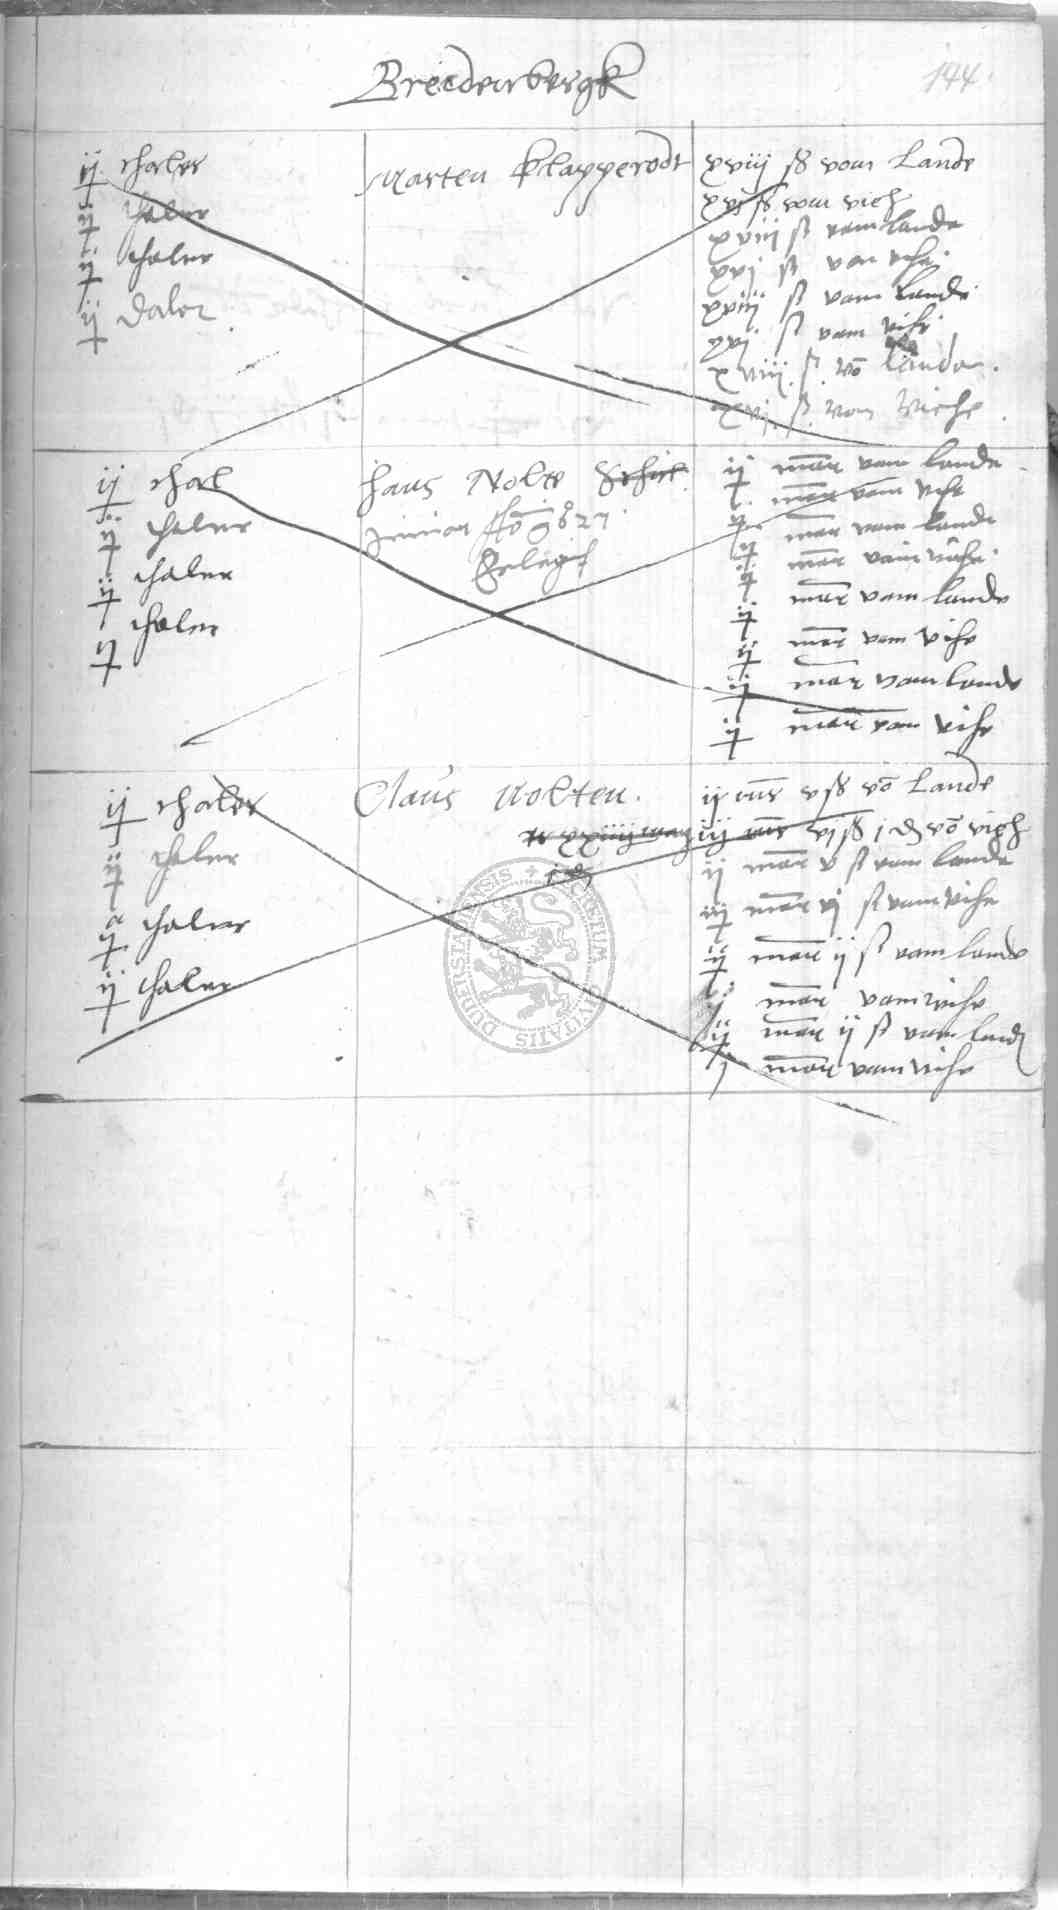 Breidenbergk
144
ij thaler
ij thaler
ij thaler
ij daler
Marten Klapperodt
xviij ß vom Lande
xvj ß vom vieh
xviij ß vam lande
xvj ß van vihe
xviij ß vam lande
xvj ß vam vihe
xviij ß vo lande
xvj ß vom Viehe
ij thal
ij thaler
ij thaler
ij thaler
Hans Nolte
junior
ij mar vam lande
mar vam vihe
ij mar vam lande
ij mar vam vihe
ij mar vam lande
ij mar vam vihe
ij mar vam lande
ij mar vam vihe
ij thaler
ij thaler
ij thaler
ij thaler
Claus Nolten
ij mr v ß vo Lande
iij mr vj ß j d vo vieh
ij mar v ß vam lande
iij mar vj ß vam vihe
ij mar ij ß vam lande
j mar vam vihe
ij mar ij ß vam land
j mar vam vihe
DUDERSTADIENSIS CIVITATIS